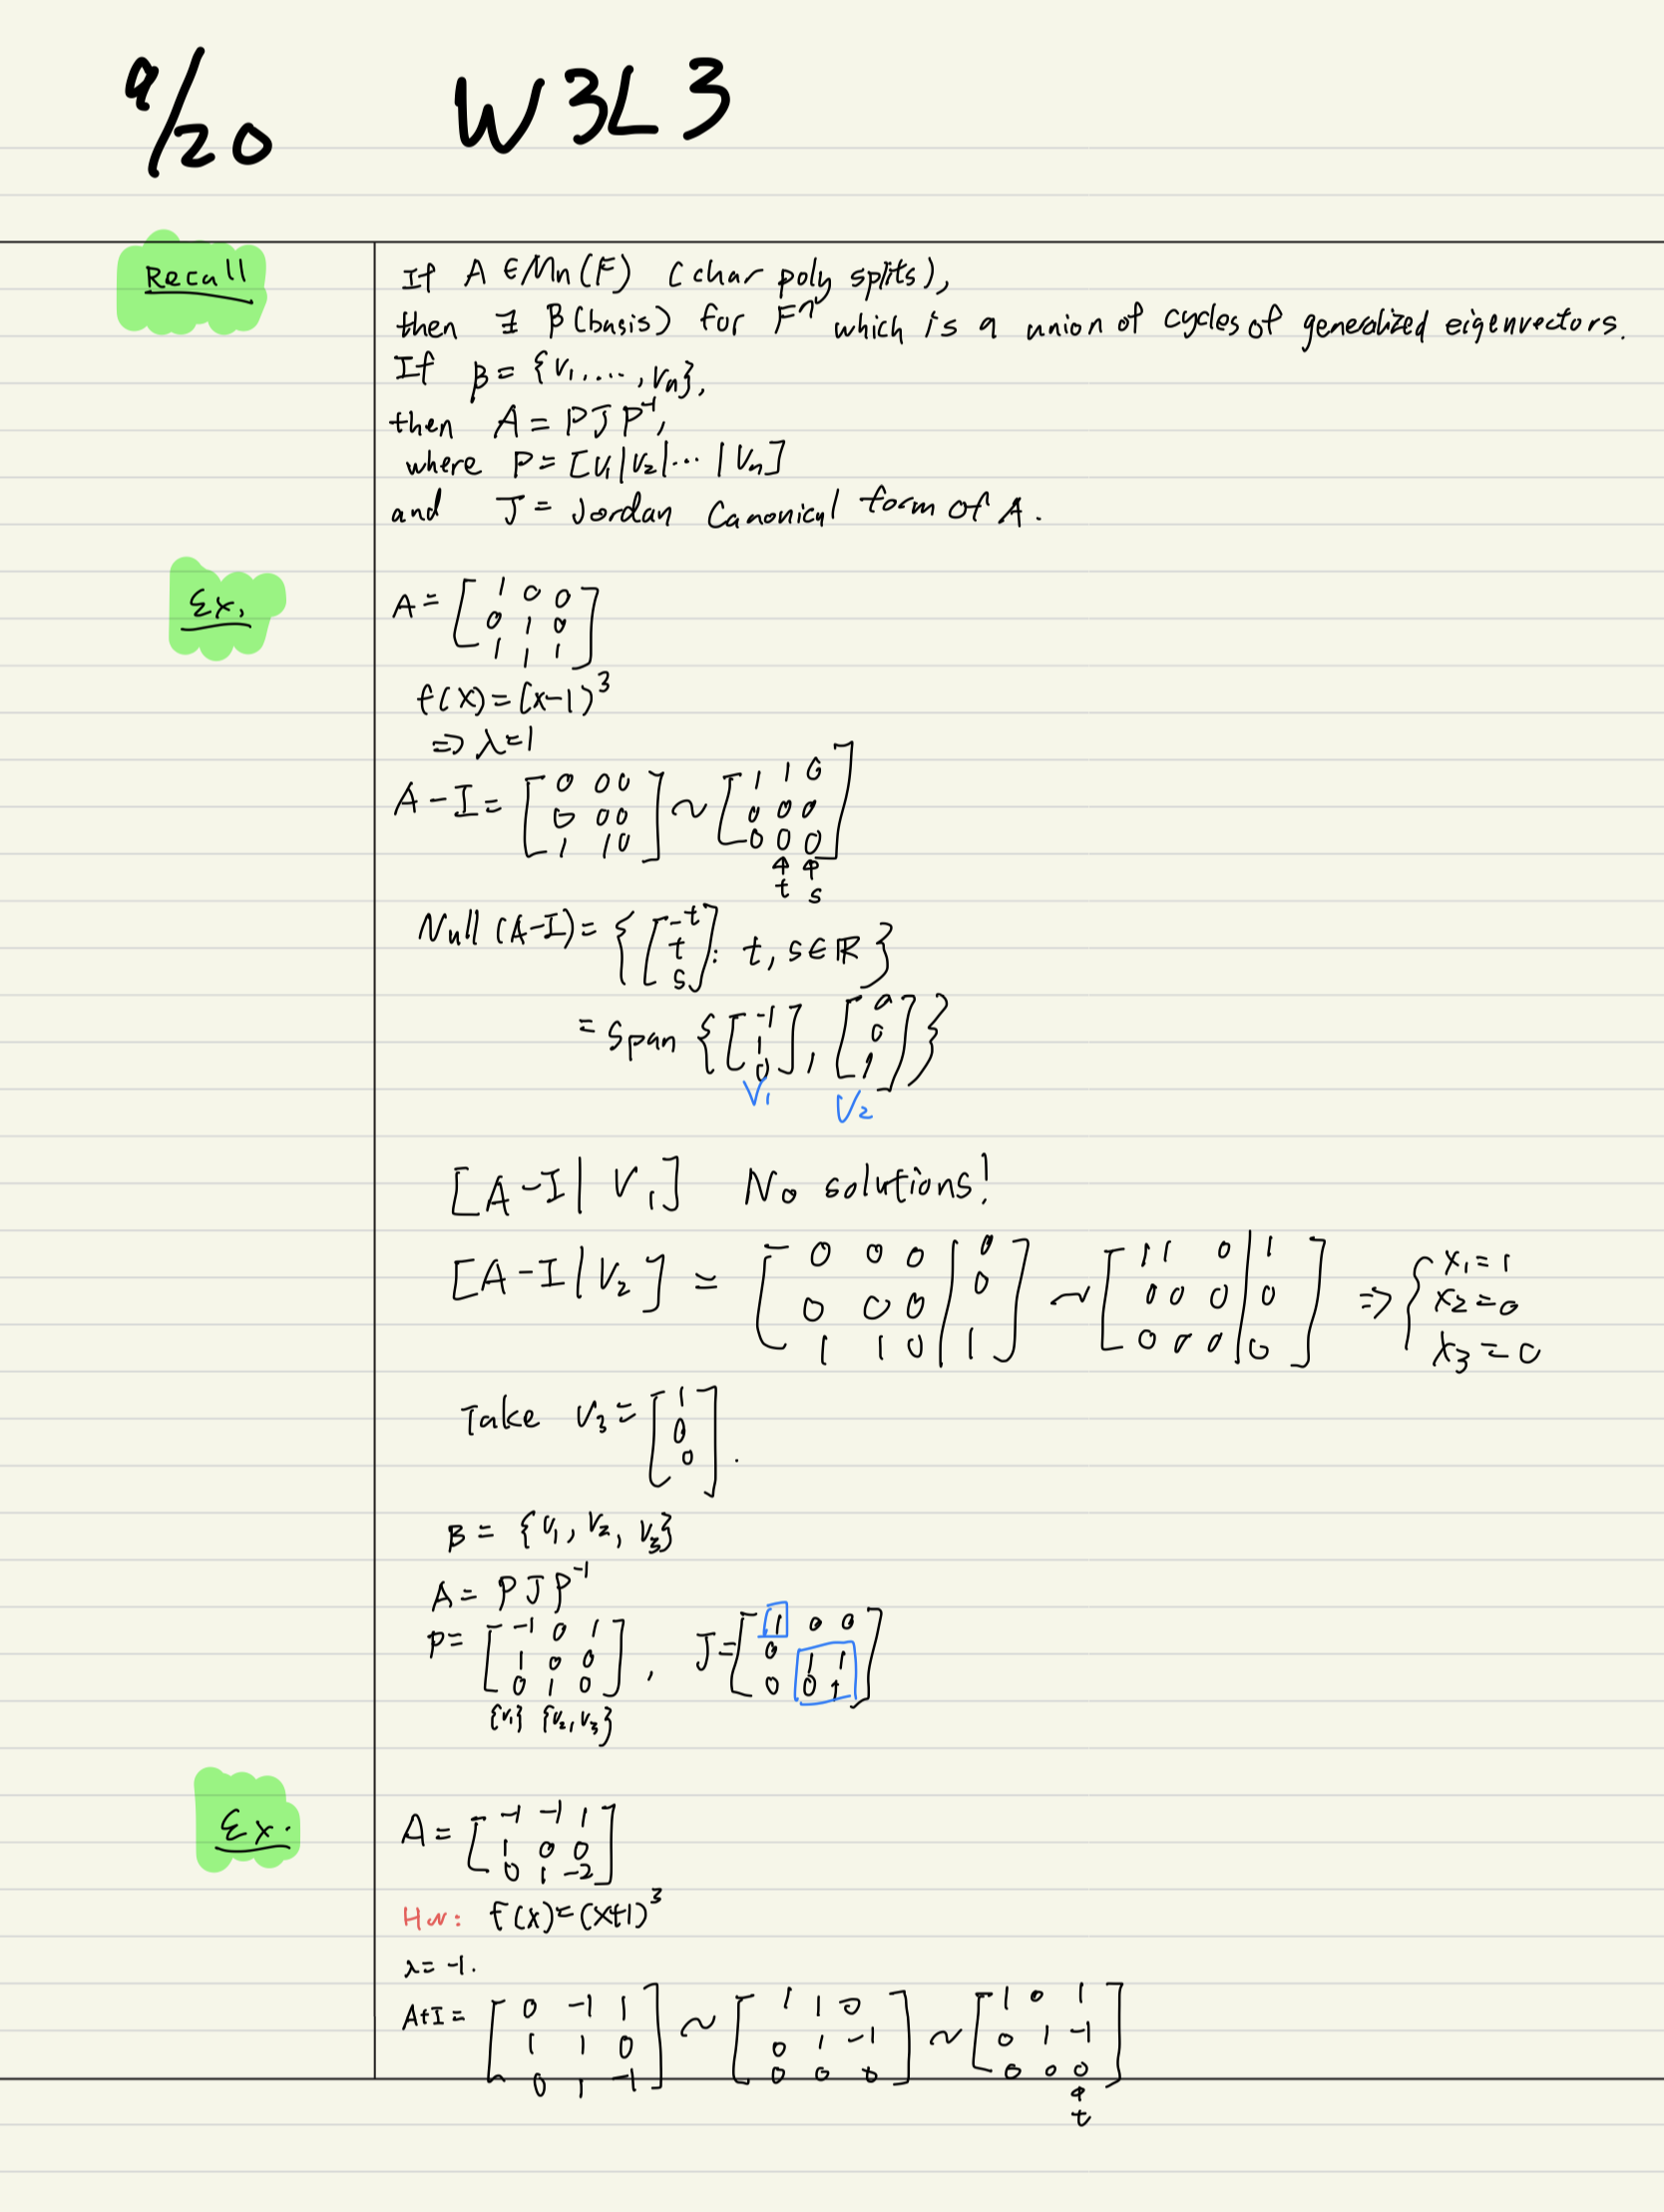 9/20 W3L3
Recall
If A ∈ Mn(F) (char poly splits),
then ∃ β(basis) for Fⁿ which is a union of cycles of generalized eigenvectors.
If β = {v₁, ..., vₙ},
then A = PJP⁻¹,
where P = [v₁|v₂|⋯|vₙ]
and J = Jordan Canonical form of A.
Ex.
A = [1 0 0; 0 1 0; 1 1 1]
f(x) = (x-1)³
⇒ λ=1
A-I = [0 0 0; 0 0 0; 1 1 0] ~ [1 1 0; 0 0 0; 0 0 0]
↑ ↑
t s
Null (A-I) = { [-t; t; s] : t, s ∈ ℝ }
= Span { [-1; 1; 0], [0; 0; 1] }
V₁ V₂
[A-I | V₁] No solutions!
[A-I | V₂] = [0 0 0 | 0; 0 0 0 | 0; 1 1 0 | 1] ~ [1 1 0 | 1; 0 0 0 | 0; 0 0 0 | 0] ⇒ { x₁ = 1; x₂ = 0; x₃ = 0
Take V₃ = [1; 0; 0].
β = {v₁, v₂, v₃}
A = PJP⁻¹
P = [-1 0 1; 1 0 0; 0 1 0], J = [1 0 0; 0 1 1; 0 0 1]
{v₁} {v₂, v₃}
Ex.
A = [-1 -1 1; 1 0 0; 0 1 -2]
HW: f(x) = (x+1)³
λ = -1.
A+I = [0 -1 1; 1 1 0; 0 1 -1] ~ [1 1 0; 0 1 -1; 0 0 0] ~ [1 0 1; 0 1 -1; 0 0 0]
↑
t